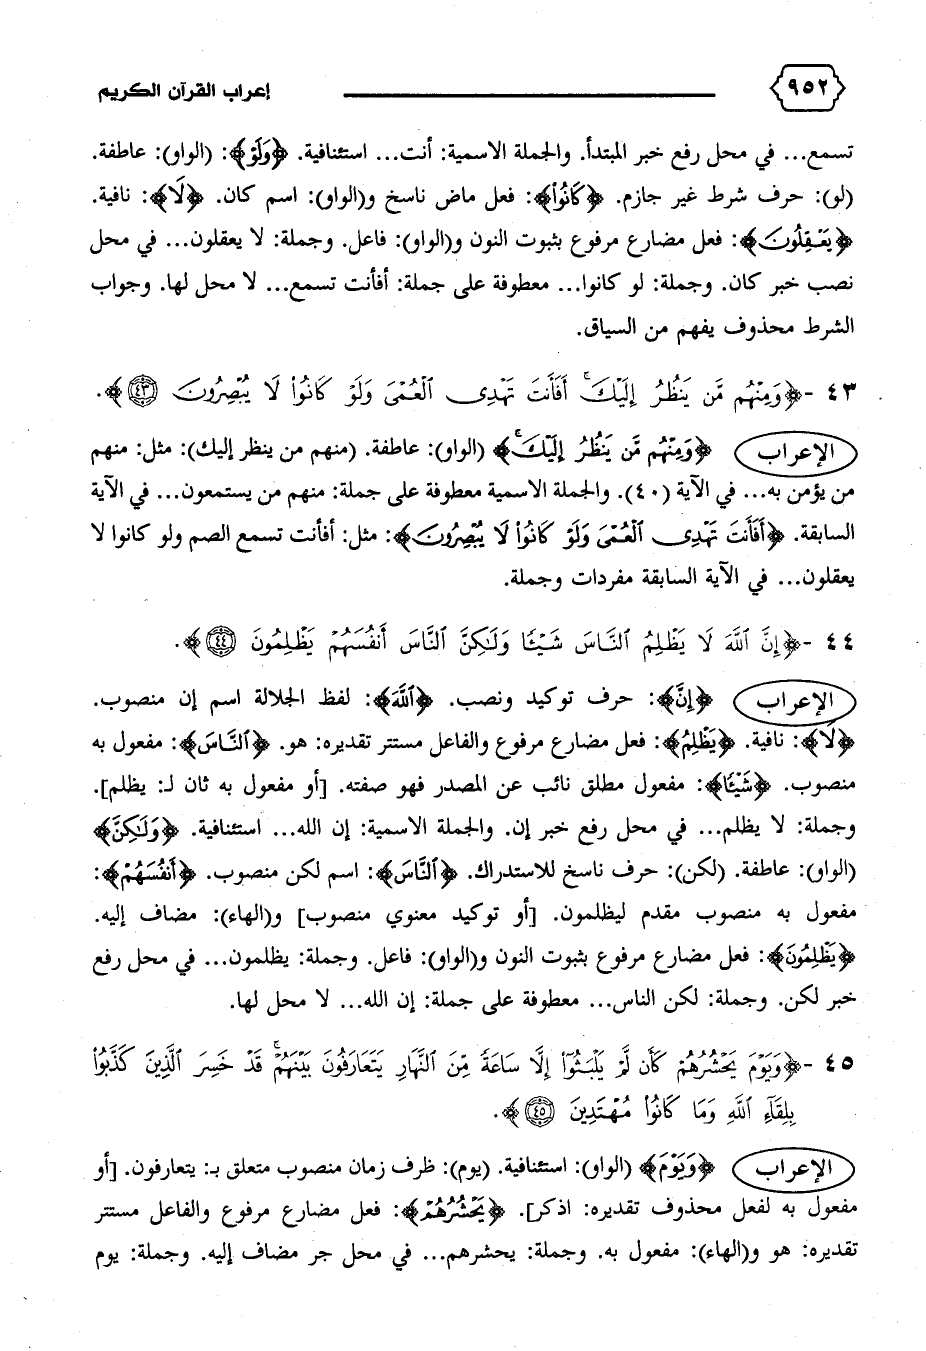 ٩٥٢ إعراب القرآن الكريم
تسمع... في محل رفع خبر المبتدأ. والجملة الاسمية: أنت... استئنافية. ﴿وَلَوْ﴾: (الواو): عاطفة.
(لو): حرف شرط غير جازم. ﴿كَانُوا۟﴾: فعل ماض ناسخ و(الواو): اسم كان. ﴿لَا﴾: نافية.
﴿يَعْقِلُونَ﴾: فعل مضارع مرفوع بثبوت النون و(الواو): فاعل. وجملة: لا يعقلون... في محل
نصب خبر كان. وجملة: لو كانوا... معطوفة على جملة: أفأنت تسمع... لا محل لها. وجواب
الشرط محذوف يفهم من السياق.
٤٣ - ﴿وَمِنْهُم مَّن يَنظُرُ إِلَيْكَ ۚ أَفَأَنتَ تَهْدِى ٱلْعُمْىَ وَلَوْ كَانُوا۟ لَا يُبْصِرُونَ ٤٣﴾.
الإعراب ﴿وَمِنْهُم مَّن يَنظُرُ إِلَيْكَ ۚ﴾ (الواو): عاطفة. (منهم من ينظر إليك): مثل: منهم
من يؤمن به... في الآية (٤٠). والجملة الاسمية معطوفة على جملة: منهم من يستمعون... في الآية
السابقة. ﴿أَفَأَنتَ تَهْدِى ٱلْعُمْىَ وَلَوْ كَانُوا۟ لَا يُبْصِرُونَ﴾: مثل: أفأنت تسمع الصم ولو كانوا لا
يعقلون... في الآية السابقة مفردات وجملة.
٤٤ - ﴿إِنَّ ٱللَّهَ لَا يَظْلِمُ ٱلنَّاسَ شَيْـًٔا وَلَـٰكِنَّ ٱلنَّاسَ أَنفُسَهُمْ يَظْلِمُونَ ٤٤﴾.
الإعراب ﴿إِنَّ﴾: حرف توكيد ونصب. ﴿ٱللَّهَ﴾: لفظ الجلالة اسم إن منصوب.
﴿لَا﴾: نافية. ﴿يَظْلِمُ﴾: فعل مضارع مرفوع والفاعل مستتر تقديره: هو. ﴿ٱلنَّاسَ﴾: مفعول به
منصوب. ﴿شَيْـًٔا﴾: مفعول مطلق نائب عن المصدر فهو صفته. [أو مفعول به ثان لـ: يظلم].
وجملة: لا يظلم... في محل رفع خبر إن. والجملة الاسمية: إن الله... استئنافية. ﴿وَلَـٰكِنَّ﴾
(الواو): عاطفة. (لكن): حرف ناسخ للاستدراك. ﴿ٱلنَّاسَ﴾: اسم لكن منصوب. ﴿أَنفُسَهُمْ﴾:
مفعول به منصوب مقدم ليظلمون. [أو توكيد معنوي منصوب] و(الهاء): مضاف إليه.
﴿يَظْلِمُونَ﴾: فعل مضارع مرفوع بثبوت النون و(الواو): فاعل. وجملة: يظلمون... في محل رفع
خبر لكن. وجملة: لكن الناس... معطوفة على جملة: إن الله... لا محل لها.
٤٥ - ﴿وَيَوْمَ يَحْشُرُهُمْ كَأَن لَّمْ يَلْبَثُوٓا۟ إِلَّا سَاعَةً مِّنَ ٱلنَّهَارِ يَتَعَارَفُونَ بَيْنَهُمْ ۚ قَدْ خَسِرَ ٱلَّذِينَ كَذَّبُوا۟
بِلِقَآءِ ٱللَّهِ وَمَا كَانُوا۟ مُهْتَدِينَ ٤٥﴾.
الإعراب ﴿وَيَوْمَ﴾ (الواو): استئنافية. (يوم): ظرف زمان منصوب متعلق بـ: يتعارفون. [أو
مفعول به لفعل محذوف تقديره: اذكر]. ﴿يَحْشُرُهُمْ﴾: فعل مضارع مرفوع والفاعل مستتر
تقديره: هو و(الهاء): مفعول به. وجملة: يحشرهم... في محل جر مضاف إليه. وجملة: يوم